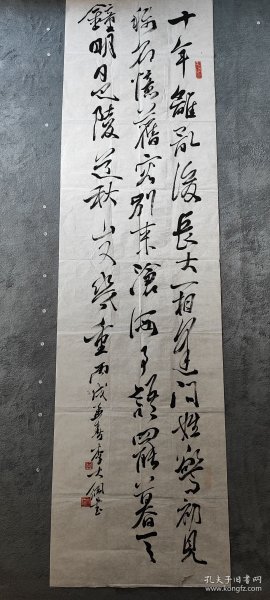 十年離亂後長大一相逢问姓驚初見
稱名憶舊容别来滄海事語罷暮天
鐘明日巴陵道秋山又幾重丙戌年春
孔夫子旧书网